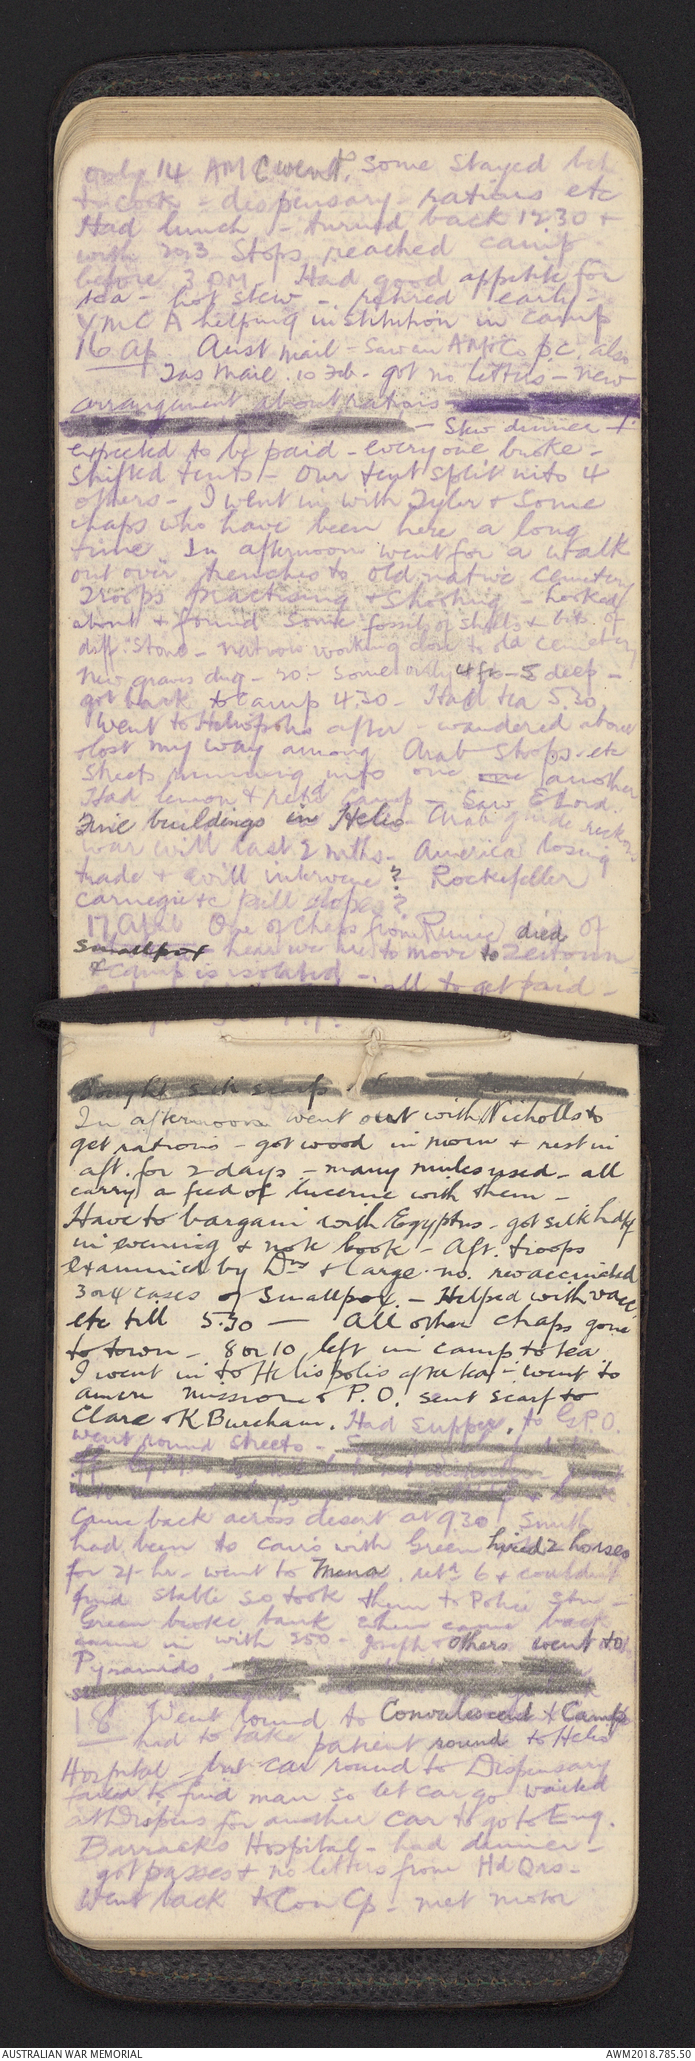 only 14 AMC went, some stayed beh
to cook - dispensary - rations etc
Had lunch - turned back 1230 +
with 2 or 3 stops reached camp
before 3 PM. Had good appetite for
tea - hot stew - retired early -
YMCA helping institution in camp
16 Ap Aust mail - saw an AMCo p.c. also
Tas mail 10 Feb - got no letters - new
arrangement about rations
- Stew dinner +
expected to be paid - everyone broke -
Shifted tents - Our tent split into 4
others - I went in with Tyler + some
chaps who have been here a long
time. In afternoon went for a walk
out over trenches to old native cemetery
Troops practising + shooting - looked
about + found some fossils of shells + bits of
diff. stone - natives working close to old cemetery
New graves dug - 20 - some only 4 ft - 5 deep -
got back to camp 4.30 - Had tea 5.30.
Went to Heliopolis after - wandered about
+ lost my way among Arab shops - etc
Streets running into one another
Had lemon + retd Camp - Saw E Lord.
Fine buildings in Helio - Arab guide reckons
war will last 2 mths - America losing
trade + will intervene? Rockefeller
Carnegie etc
17 April One of chaps from died of
smallpox hear we are to move to Zeitoun
+ camp is isolated -
all to get paid -
Bought silk scarf
In afternoon went out with Nicholls to
get rations - got wood in morn + rest in
aft. for 2 days - many mules used - all
carry a feed of lucerne with them -
Have to bargain with Egyptns - got silk hdkf
in evening + note book - Aft. troops
examined by Drs + large no. revaccinated
3 or 4 cases of smallpox. - Helped with vacc
etc till 5.30 - All other chaps gone
to town - 8 or 10 left in camp to tea
I went in to Heliopolis after tea - went to
Amern mission + P.O. sent scarf to
Clare + K Burcham. Had supper, to G.P.O.
went round streets -
Came back across desert at 930 Smith
had been to Cairo with Green hired 2 horses
for 24 hr - went to Mena. retd 6 + couldnt
find stable so took them to Police stn -
Green broke bank when came back
came in with 250 - Joseph + others went to
Pyramids.
18 Went round to Convalescent + Camp
had to take patient round to Helio
Hospital - but car round to Dispensary
failed to find man so let car go waited
at Dispens for another car to go to Eng.
Barracks Hospital - had dinner -
got passes + no letters from Hd Qrs -
Went back to Con Cp - met motor
AUSTRALIAN WAR MEMORIAL
AWM2018.785.50